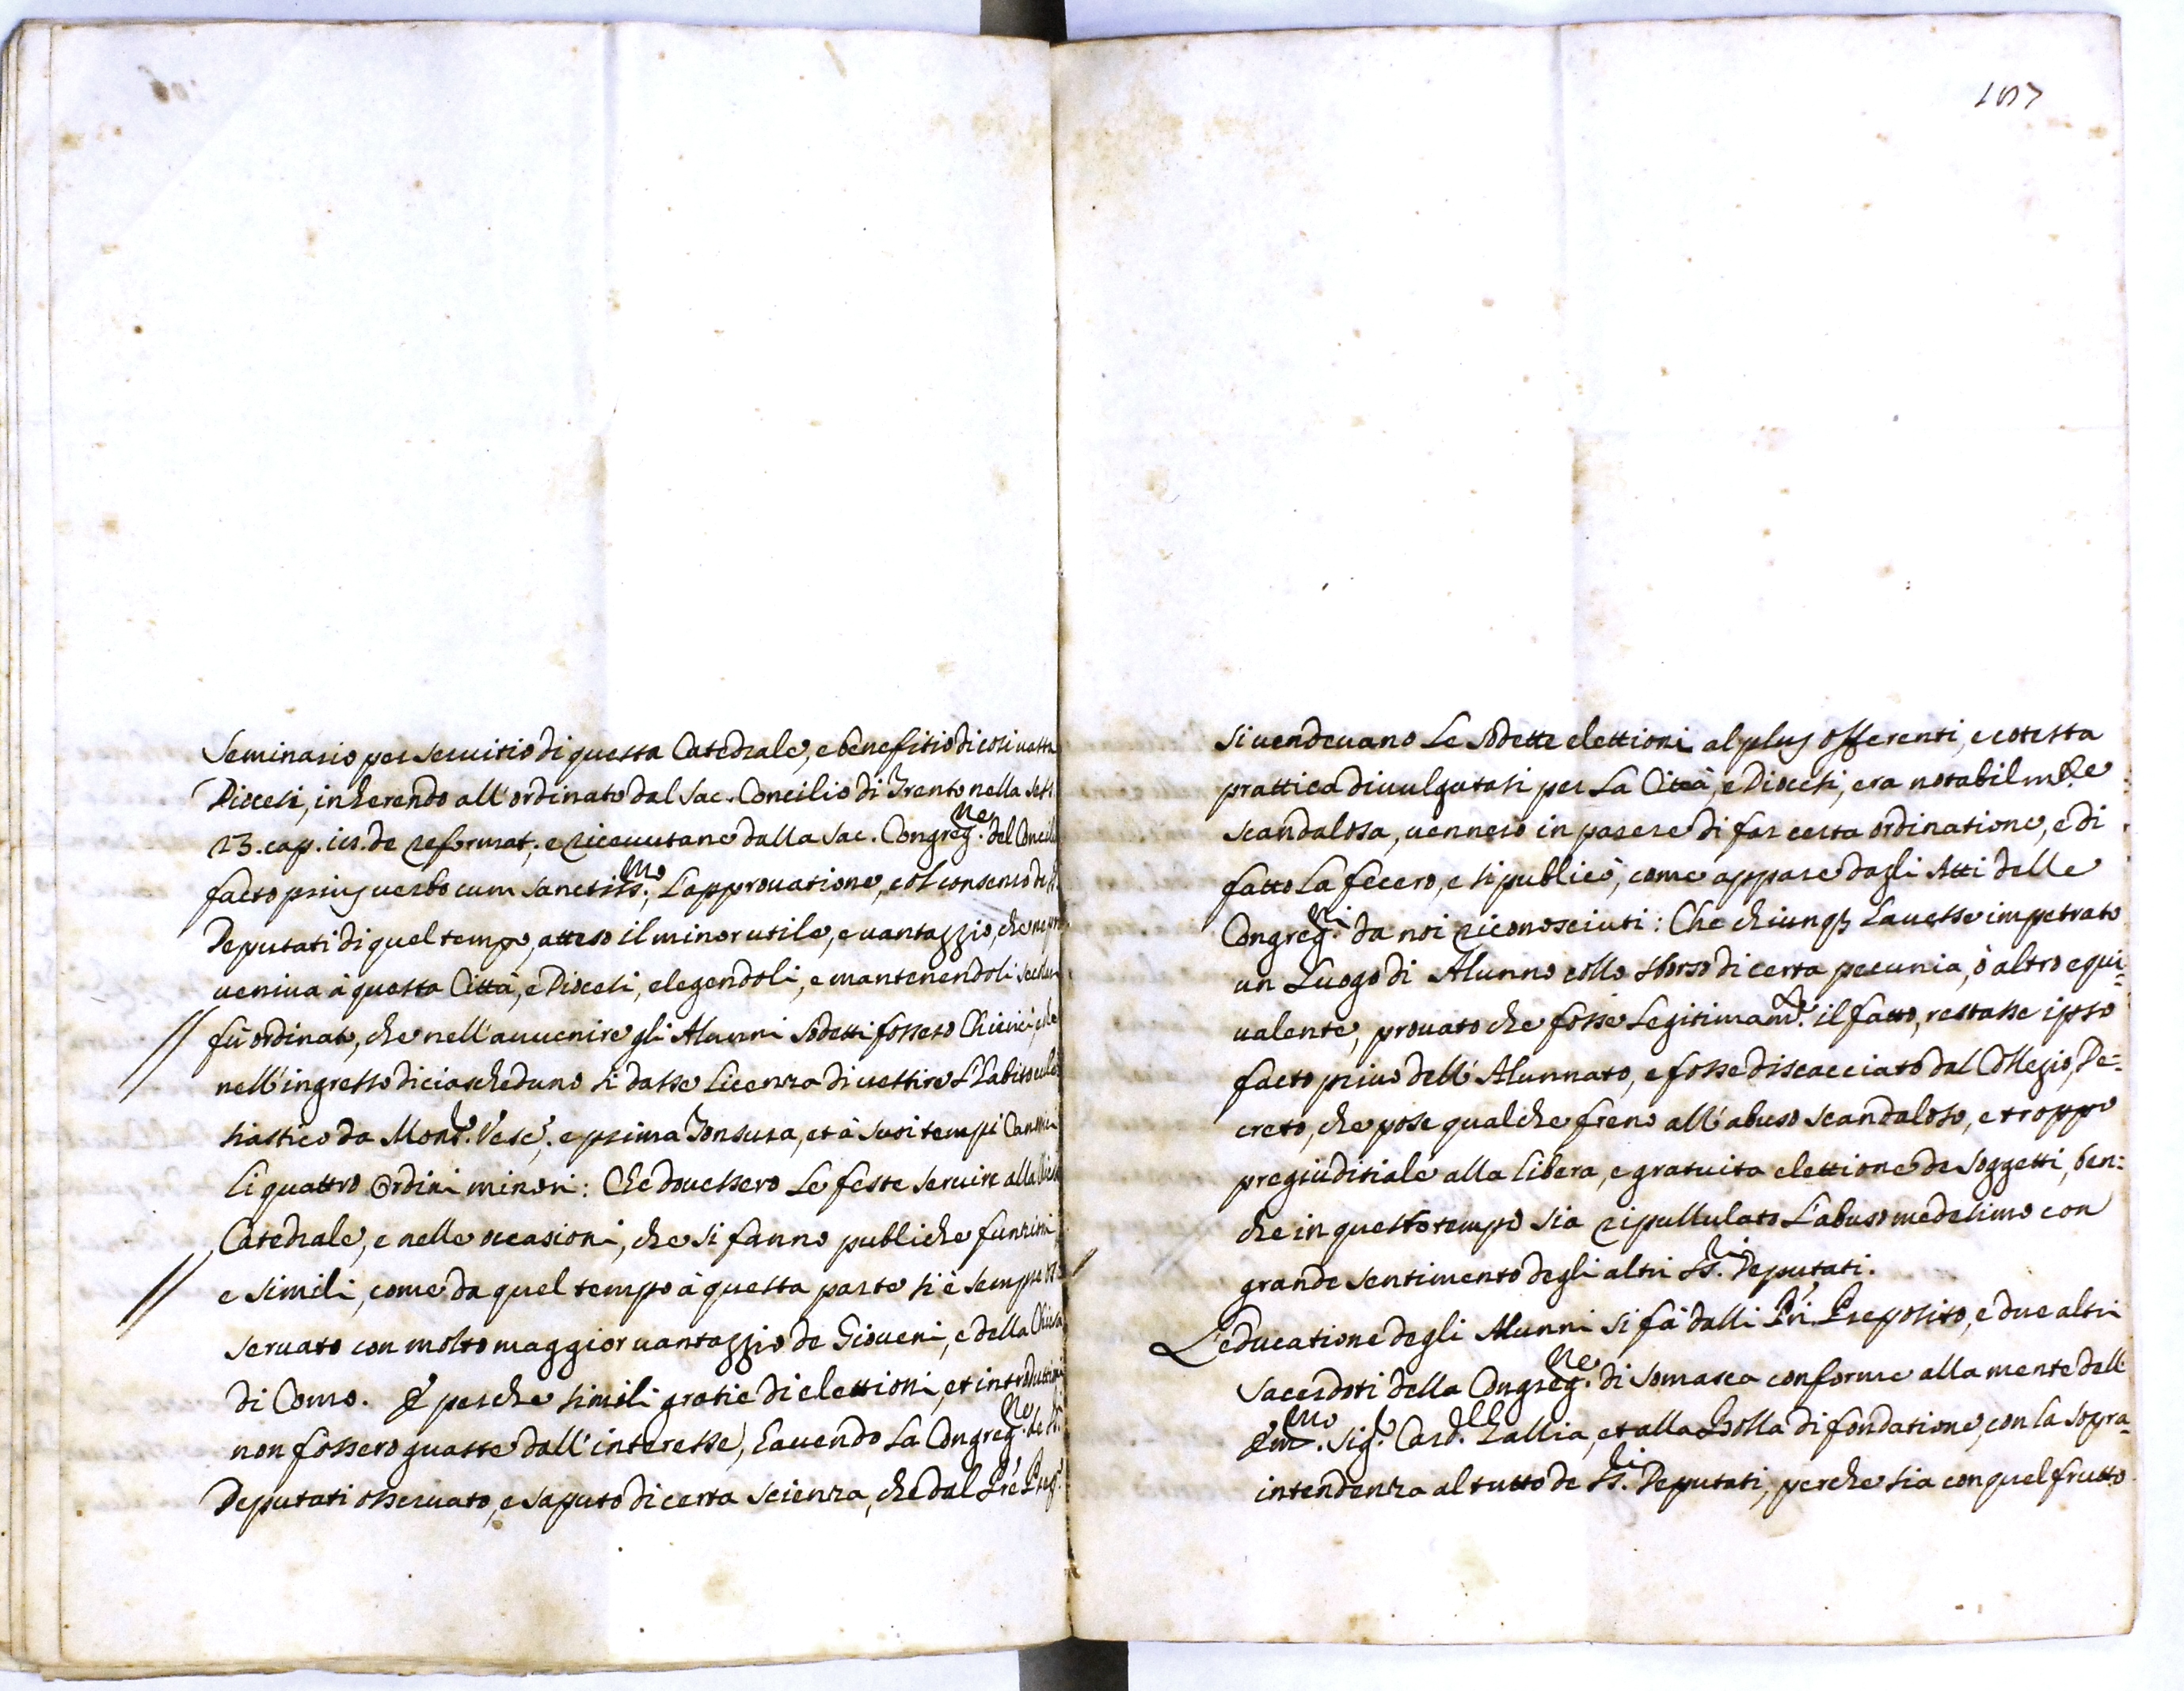 Seminario per seruitio di questa Catedrale, e benefitio di cosi uasta
Diocesi, inherendo all'ordinato dal Sac. Concilio di Trento nella sess.
23. cap. 18. de reformat; e riceuutane dalla Sac. Congreg.ne del Concilio
facto prius uerbo cum Sanctiss.mo L'approuatione, col consenso de SS.
Deputati di quel tempo, atteso il minor utile, e uantaggio, che ne
ueniua à questa Città, e Diocesi, elegendoli, e mantenendoli secolari
fù ordinato, che nell'auuenire gli Alunni sodetti fossero Chierici, e che
nell'ingresso di ciascheduno si dasse licenza di uestire L'habito eccle
siastico da Mons.r Vesc.o, e prima Tonsura, et à suoi tempi Canonici
li quattro Ordini minori: Che douessero le feste seruire alla Chiesa
Catedrale, e nelle occasioni, che si fanno publiche funzioni,
e simili, come da quel tempo à questa parte si è sempre os
seruato con molto maggior uantaggio de Gioueni, e della Chiesa
di Como. E perche simili gratie di elettioni, et introduttioni
non fossero guaste dall'interesse, hauendo La Congreg.ne de SS.ri
Deputati osseruato, e saputo di certa scienza, che dal Pre
107
si uendeuano Le sodette elettioni al plus offerenti, e cotesta
prattica diuulgatasi per La Città, e Diocesi, era notabilm.te
scandalosa, uennero in parere di far certa ordinatione, e di
fatto La fecero, e si publicò, come appare dagli Atti delle
Congreg.ni da noi riconosciuti: Che chiunq3 hauesse impetrato
un Luogo di Alunno collo sborso di certa pecunia, ò altro equi=
ualente, prouato che fosse Legitimam.te il fatto, restasse ipso
facto priuo dell'Alunnato, e fosse discacciato dal Collegio, De=
creto, che pose qualche freno all'abuso scandaloso, e troppo
pregiuditiale alla libera, e gratuita elettione de soggetti, ben=
che in questo tempo sia ripullulato L'abuso medesimo con
grande sentimento degli altri SS.ri Deputati.
L'educatione degli Alunni si fà dalli Pri. Preposito, e due altri
Sacerdoti della Congreg.ne di Somasca conforme alla mente dell
Em.mo Sig.r Card.l Gallia, et alla Bolla di fondatione, con la sopra=
intendenza al tutto de SS.ri Deputati, perche sia con quel frutto